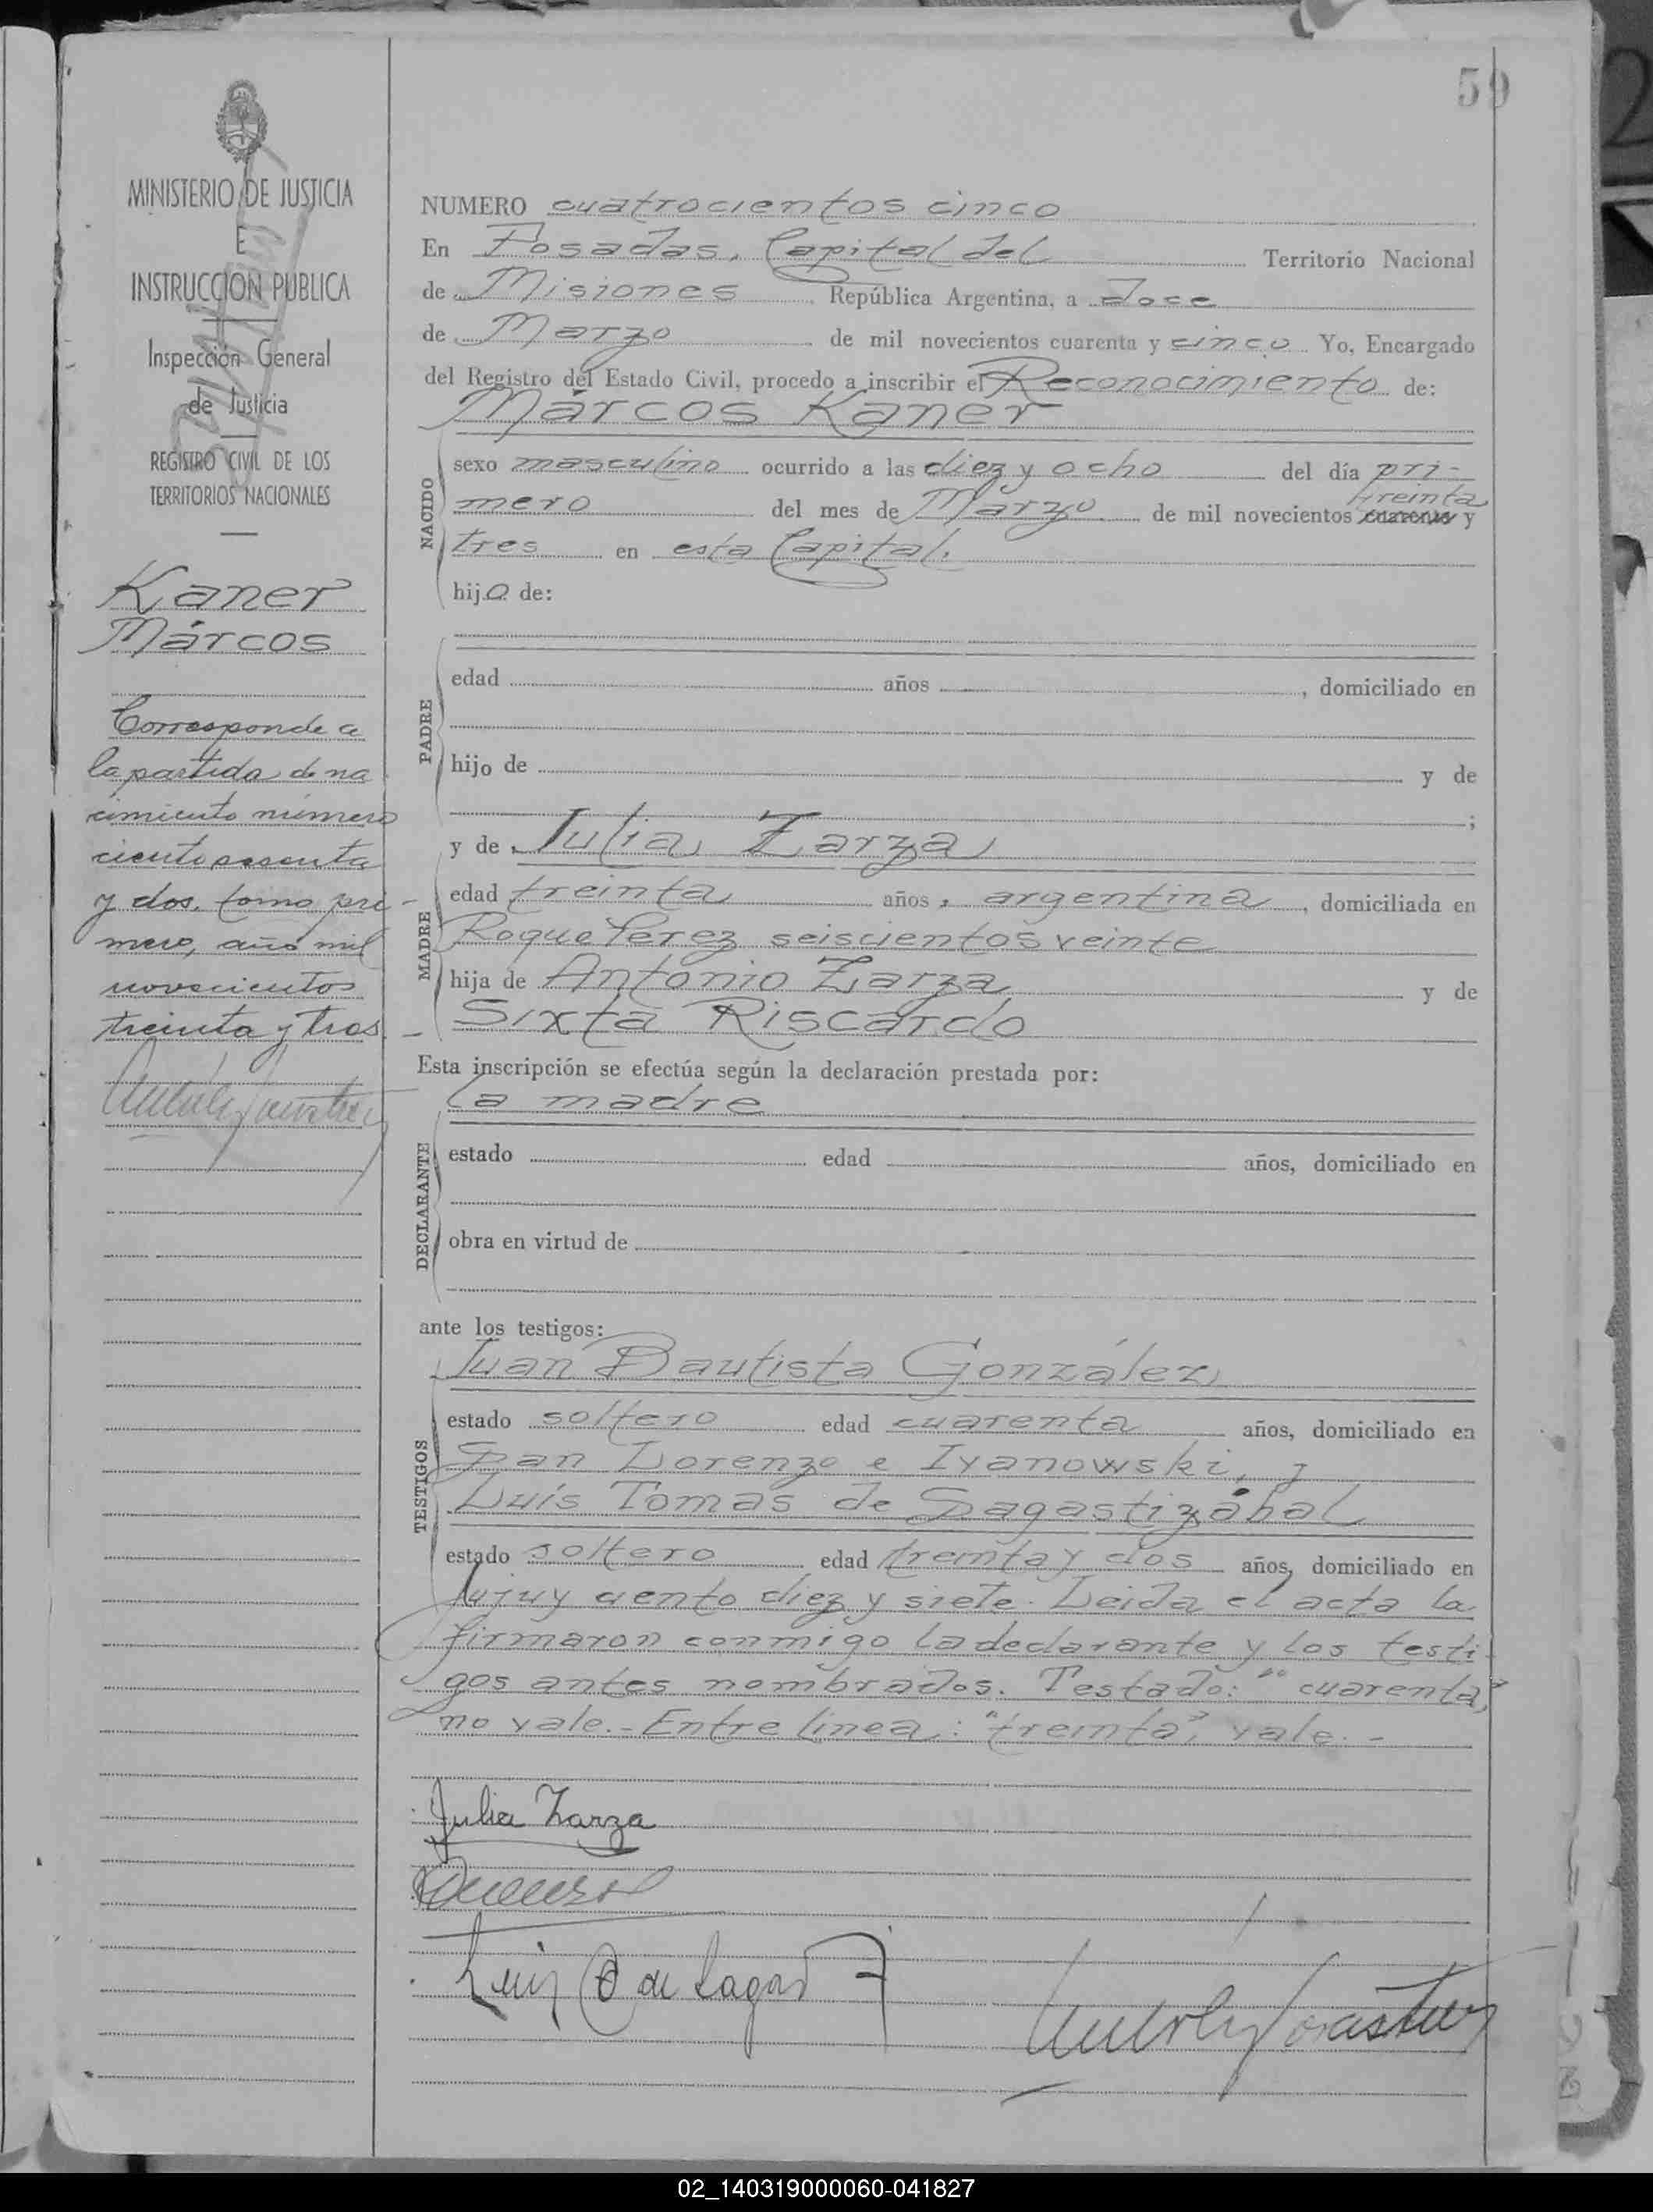 59
MINISTERIO DE JUSTICIA
E
INSTRUCCION PUBLICA
Inspección General
de Justicia
REGISTRO CIVIL DE LOS
TERRITORIOS NACIONALES
Kaner
Márcos
Corresponde a
la partida de na
cimiento número
ciento sesenta
y dos, tomo pri-
mero, año mil
novecientos
treinta y tres.-
NUMERO cuatrocientos cinco
En Posadas, Capital del Territorio Nacional
de Misiones República Argentina, a doce
de Marzo de mil novecientos cuarenta y cinco Yo, Encargado
del Registro del Estado Civil, procedo a inscribir el Reconocimiento de:
Márcos Kaner
NACIDO
sexo masculino ocurrido a las diez y ocho del día pri-
treinta
mero del mes de Marzo de mil novecientos cuarenta y
tres en esta Capital.
hijo de:
PADRE
edad años , domiciliado en
hijo de y de
;
y de Julia Zarza
MADRE
edad treinta años, argentina, domiciliada en
Roque Perez seiscientos veinte
hija de Antonio Zarza y de
Sixta Riscardo
Esta inscripción se efectúa según la declaración prestada por:
la madre
DECLARANTE
estado edad años, domiciliado en
obra en virtud de
ante los testigos:
Juan Bautista González
TESTIGOS
estado soltero edad cuarenta años, domiciliado en
San Lorenzo e Ivanowski, y
Luis Tomas de Sagastizábal
estado soltero edad treinta y dos años, domiciliado en
Jujuy ciento diez y siete. Leida el acta la
firmaron conmigo la declarante y los testi-
gos antes nombrados. Testado: "cuarenta",
no vale.- Entre linea: "treinta", vale.-
Julia Zarza
02_140319000060-041827